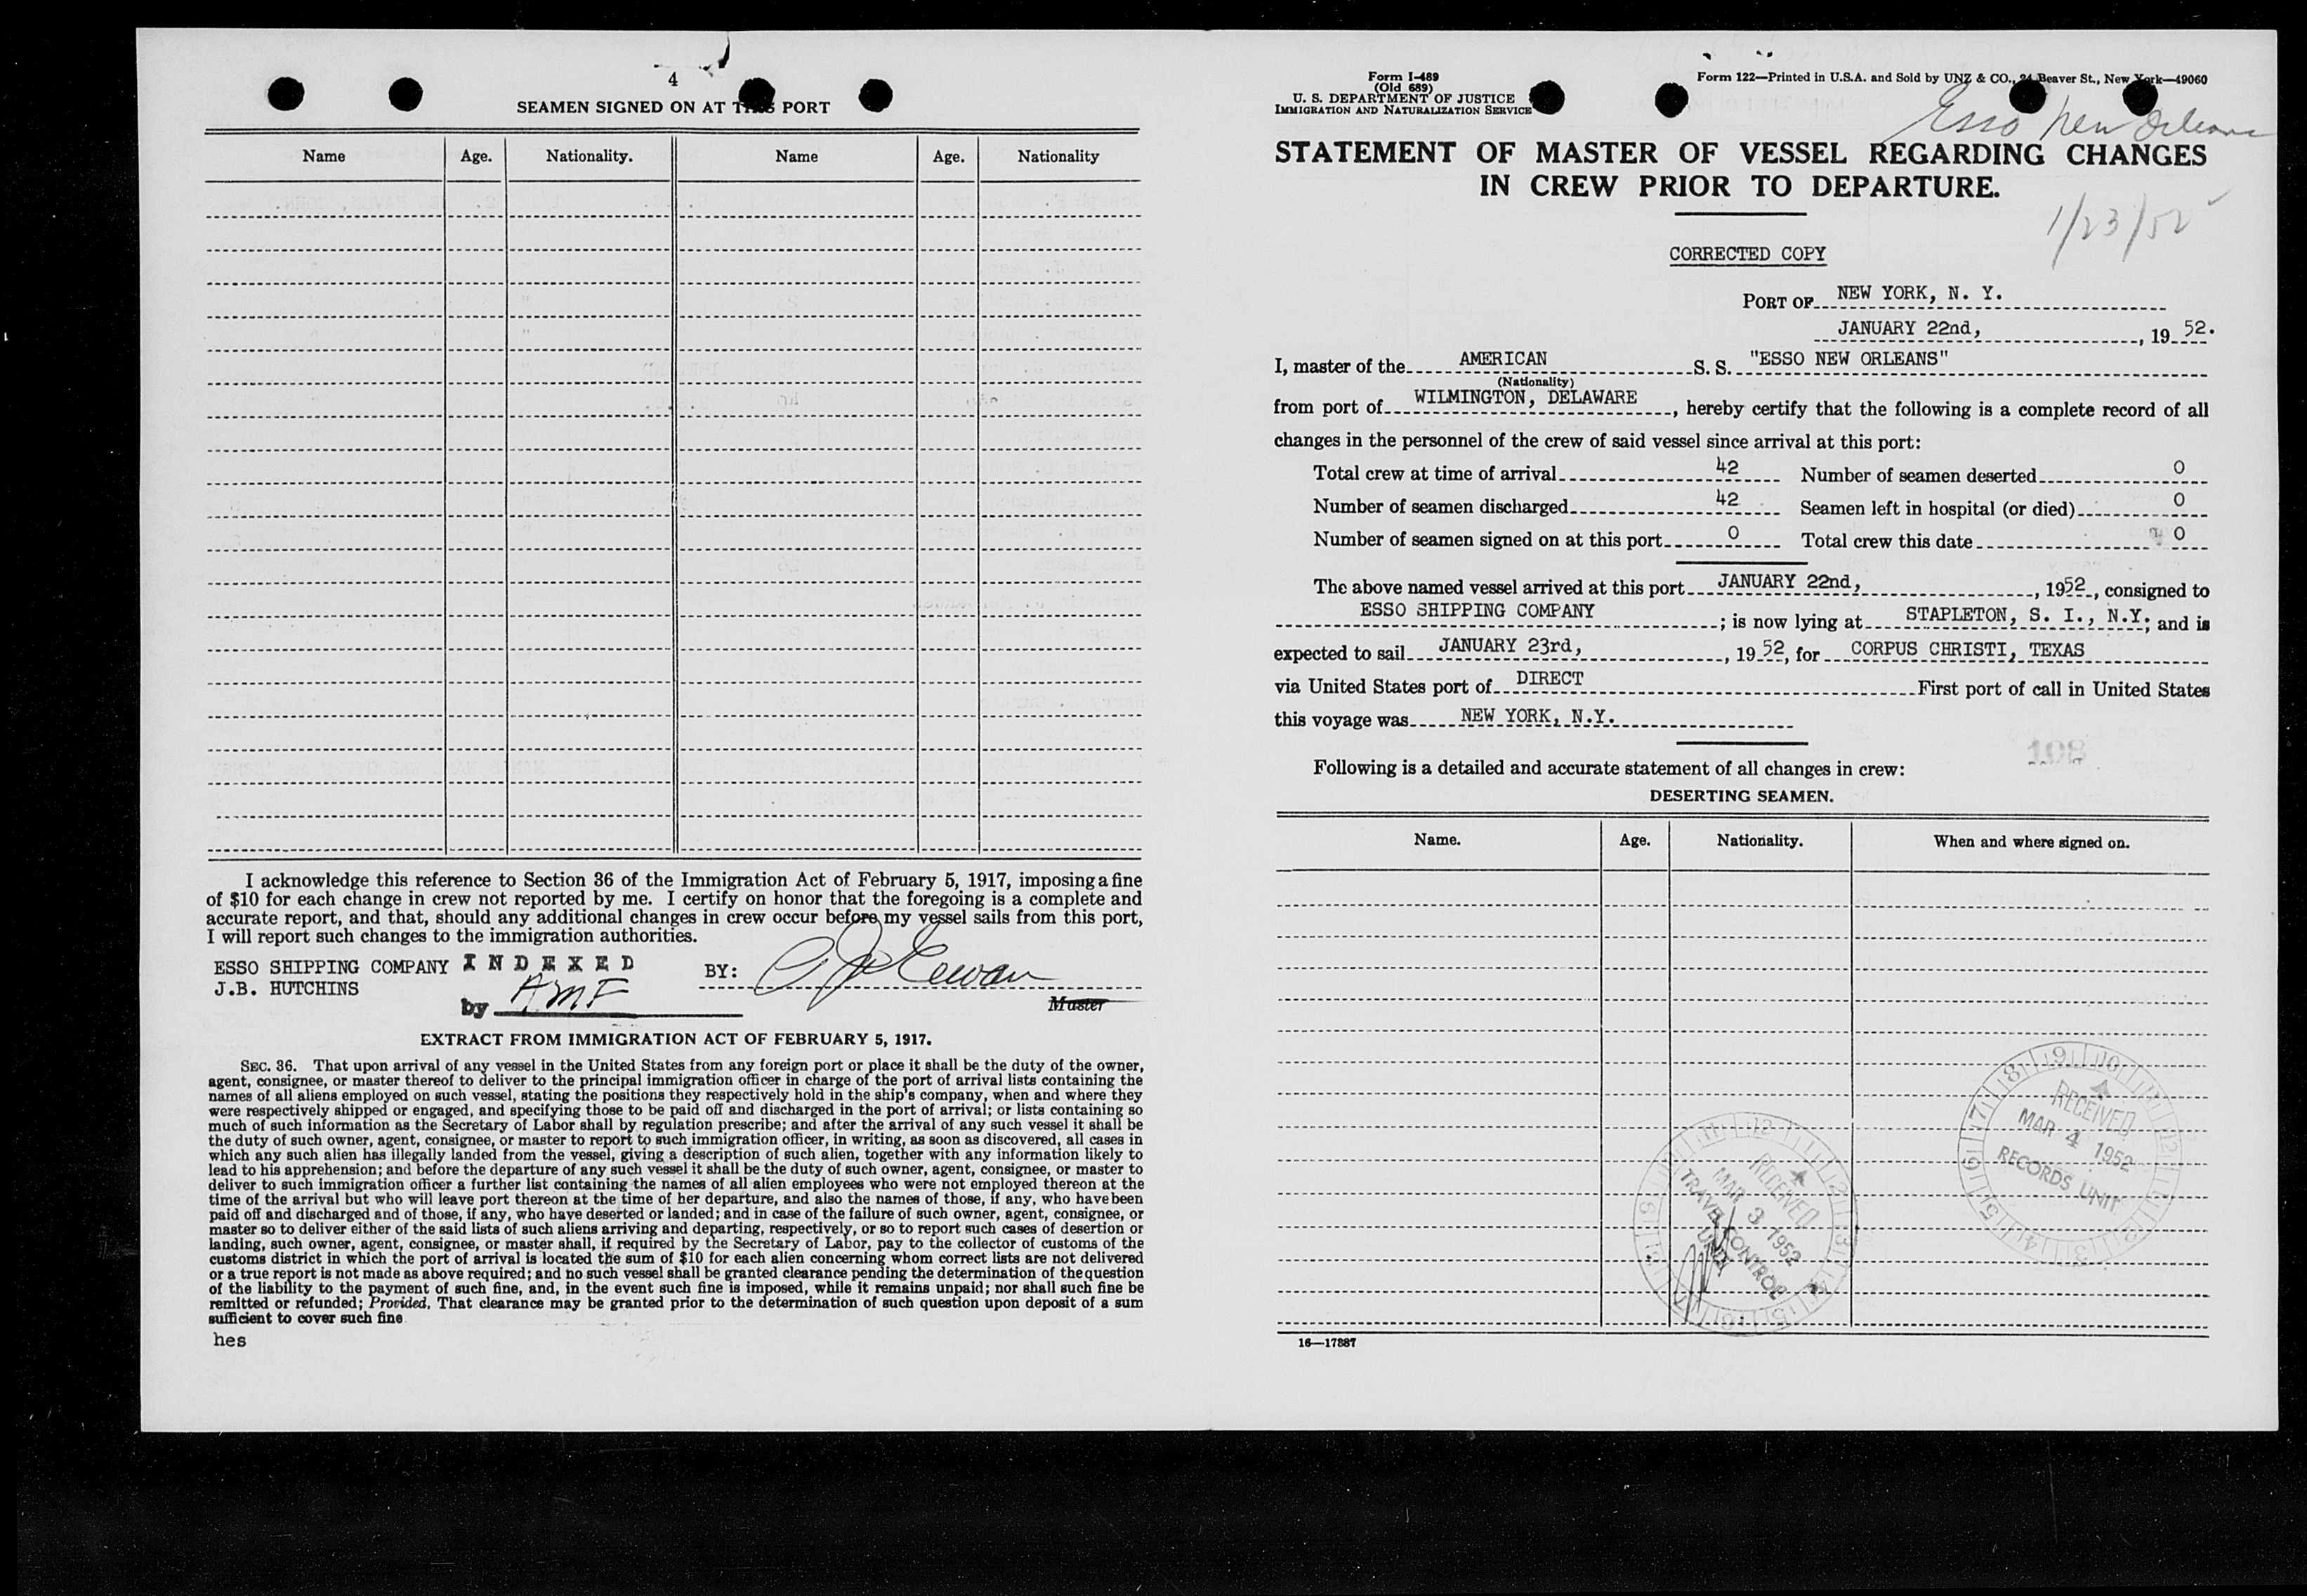 4
SEAMEN SIGNED ON AT THIS PORT
Name Age. Nationality. Name Age. Nationality
I acknowledge this reference to Section 36 of the Immigration Act of February 5, 1917, imposing a fine
of $10 for each change in crew not reported by me. I certify on honor that the foregoing is a complete and
accurate report, and that, should any additional changes in crew occur before my vessel sails from this port,
I will report such changes to the immigration authorities.
ESSO SHIPPING COMPANY INDEXED BY:
J.B. HUTCHINS
by AMF
Master
EXTRACT FROM IMMIGRATION ACT OF FEBRUARY 5, 1917.
SEC. 36. That upon arrival of any vessel in the United States from any foreign port or place it shall be the duty of the owner,
agent, consignee, or master thereof to deliver to the principal immigration officer in charge of the port of arrival lists containing the
names of all aliens employed on such vessel, stating the positions they respectively hold in the ship's company, when and where they
were respectively shipped or engaged, and specifying those to be paid off and discharged in the port of arrival; or lists containing so
much of such information as the Secretary of Labor shall by regulation prescribe; and after the arrival of any such vessel it shall be
the duty of such owner, agent, consignee, or master to report to such immigration officer, in writing, as soon as discovered, all cases in
which any such alien has illegally landed from the vessel, giving a description of such alien, together with any information likely to
lead to his apprehension; and before the departure of any such vessel it shall be the duty of such owner, agent, consignee, or master to
deliver to such immigration officer a further list containing the names of all alien employees who were not employed thereon at the
time of the arrival but who will leave port thereon at the time of her departure, and also the names of those, if any, who have been
paid off and discharged and of those, if any, who have deserted or landed; and in case of the failure of such owner, agent, consignee, or
master so to deliver either of the said lists of such aliens arriving and departing, respectively, or so to report such cases of desertion or
landing, such owner, agent, consignee, or master shall, if required by the Secretary of Labor, pay to the collector of customs of the
customs district in which the port of arrival is located the sum of $10 for each alien concerning whom correct lists are not delivered
or a true report is not made as above required; and no such vessel shall be granted clearance pending the determination of the question
of the liability to the payment of such fine, and, in the event such fine is imposed, while it remains unpaid; nor shall such fine be
remitted or refunded; Provided, That clearance may be granted prior to the determination of such question upon deposit of a sum
sufficient to cover such fine
hes
Form I-489
(Old 689)
U. S. DEPARTMENT OF JUSTICE
IMMIGRATION AND NATURALIZATION SERVICE
Form 122—Printed in U.S.A. and Sold by UNZ & CO., 24 Beaver St., New York—49060
Esso New Orleans
STATEMENT OF MASTER OF VESSEL REGARDING CHANGES
IN CREW PRIOR TO DEPARTURE.
1/23/52
CORRECTED COPY
PORT OF NEW YORK, N. Y.
JANUARY 22nd, , 19 52.
I, master of the AMERICAN S. S. "ESSO NEW ORLEANS"
(Nationality)
from port of WILMINGTON, DELAWARE , hereby certify that the following is a complete record of all
changes in the personnel of the crew of said vessel since arrival at this port:
Total crew at time of arrival 42 Number of seamen deserted 0
Number of seamen discharged 42 Seamen left in hospital (or died) 0
Number of seamen signed on at this port 0 Total crew this date 0
The above named vessel arrived at this port JANUARY 22nd, , 1952 , consigned to
ESSO SHIPPING COMPANY ; is now lying at STAPLETON, S. I., N.Y. ; and is
expected to sail JANUARY 23rd, , 19 52, for CORPUS CHRISTI, TEXAS
via United States port of DIRECT First port of call in United States
this voyage was NEW YORK, N.Y.
108
Following is a detailed and accurate statement of all changes in crew:
DESERTING SEAMEN.
Name. Age. Nationality. When and where signed on.
RECEIVED
MAR 4 1952
RECORDS UNIT
RECEIVED
MAR 3 1952
TRAVEL CONTROL
UNIT
16—17887